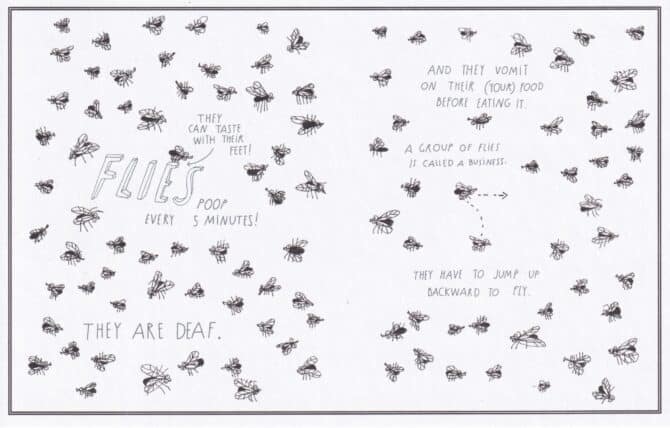 THEY
CAN TASTE
WITH THEIR
FEET!
FLIES
POOP
EVERY 5 MINUTES!
THEY ARE DEAF.
AND THEY VOMIT
ON THEIR (YOUR) FOOD
BEFORE EATING IT.
A GROUP OF FLIES
IS CALLED A BUSINESS.
THEY HAVE TO JUMP UP
BACKWARD TO FLY.